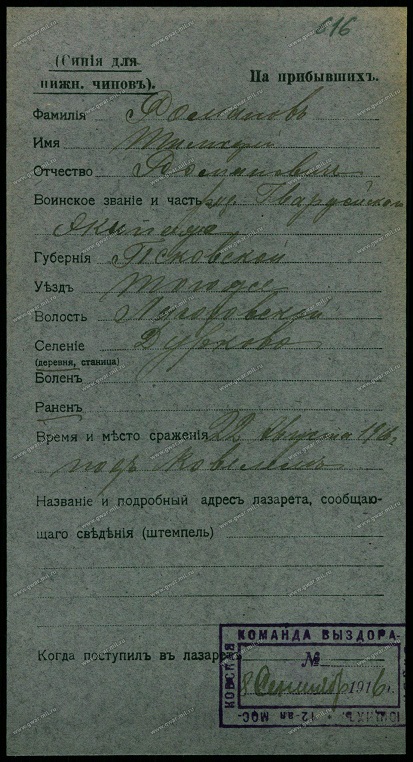 616
(Синія для
нижн. чиновъ).
На прибывшихъ.
Фамилія Романовъ
Имя
Отчество Романовичъ
Воинское званіе и часть ряд. Гвардейской
Губернія Псковской
Уѣздъ
Волость
Селеніе Дурково
(деревня, станица)
Боленъ
Раненъ
Время и мѣсто сраженія 22 Августа 1916 г.
подъ Ковелемъ
Названіе и подробный адресъ лазарета, сообщаю-
щаго свѣдѣнія (штемпель)
Когда поступилъ въ лазаретъ
КОМАНДА ВЫЗДОРА-
№
8 Сентября 1916 г.
12-ая МОС-
КОВСКАЯ
www.gwar.mil.ru